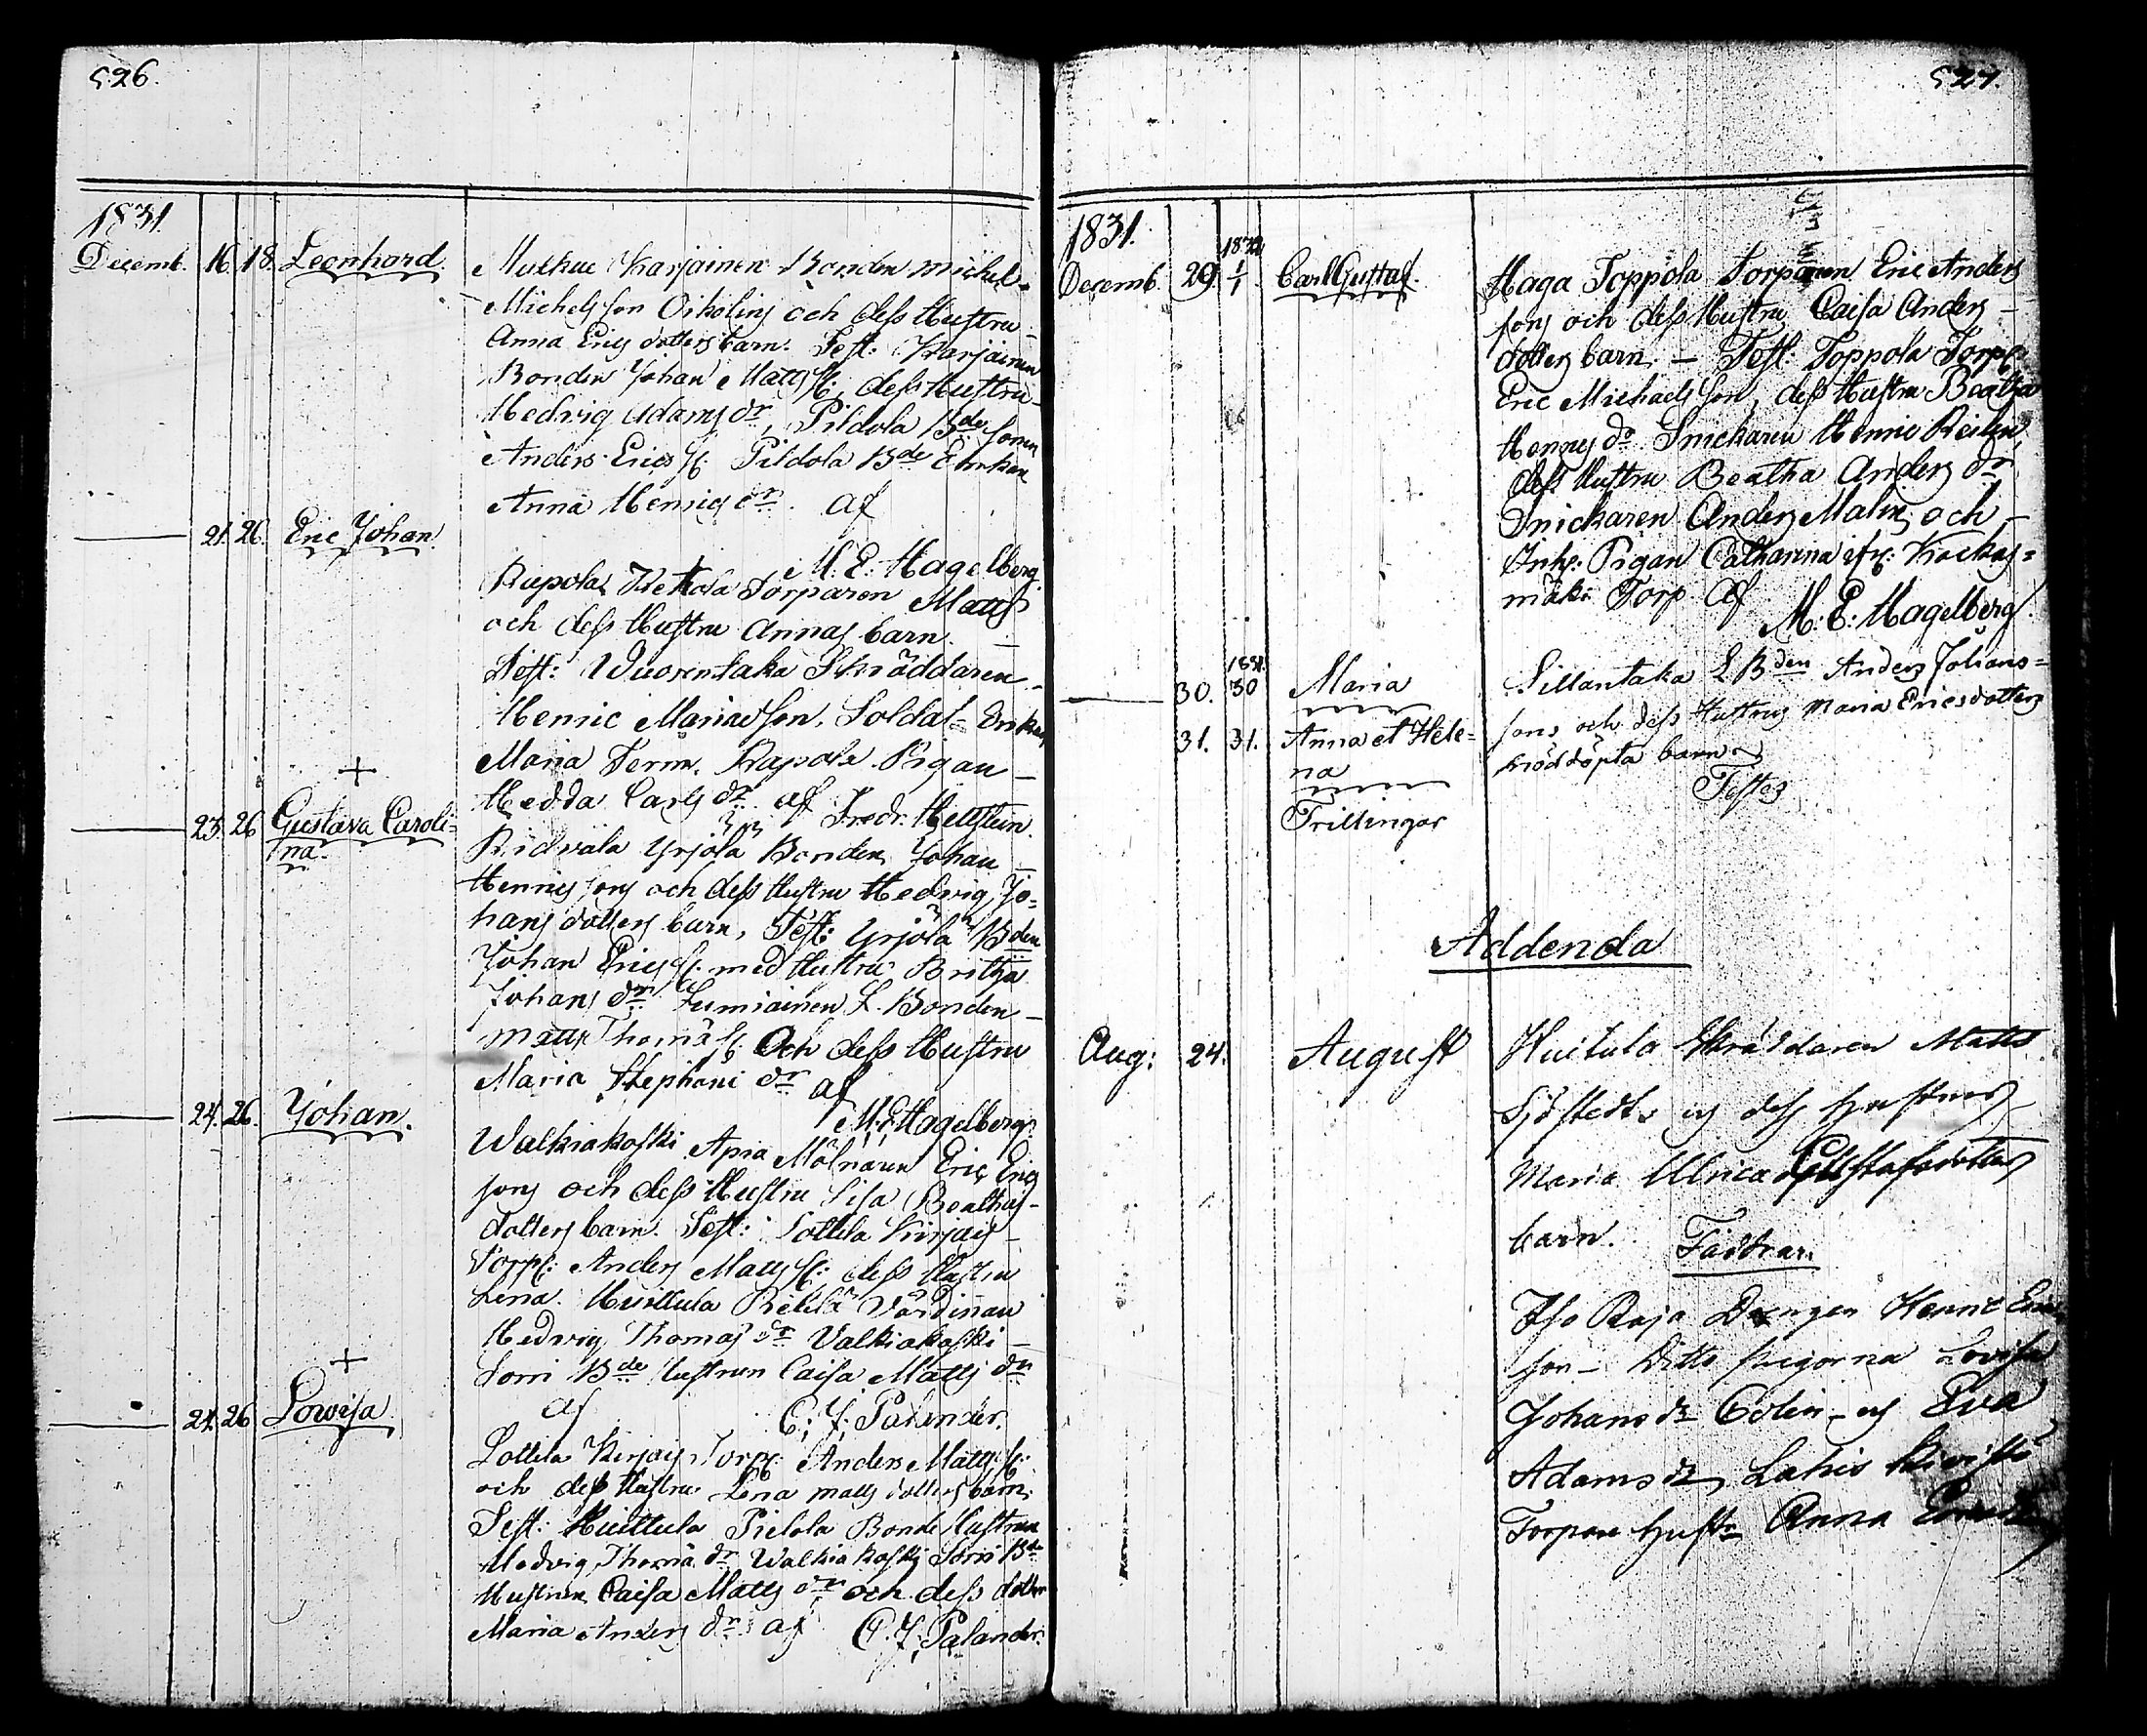 526.
1831.
Decemb. 16. 18. Leonhard.
Mutkue Karjainen Bonden Michel
Michelsson Oikolins och dess Hustru
Anna Erics dotters barn. Test: Karjainen
Bonden Johan Matts S: dess Hustru
Hedvig Adams dr, Pildola Bde Sonen
Anders Erics S. Pildola Bde Enkan
Anna Henrics dr. af
M: E: Hagelberg
21. 26. Eric Johan.
Rapola Torparen Matts
och dess Hustru Annas barn.
Test: Wuorentaka Skräddaren
Henric Mariæ Son, Soldat= Enkan
Maria Ferm. Rapola Pigan
Hedda Carls dr. af Fredr. Hellsten
+
23. 26 Gustava Caroli=
na.
Ridvala Yrjölä Bonden Johan
Henrics sons och dess Hustru Hedvig Jo=
hans dotters barn, Test: Yrjölä Bden
Johan Erics S. med Hustru Britha
Johans dr. Lumiainen L. Bonden
Matts Thomæ S. Och dess Hustru
Maria Stephani dr af
M: E: Hagelberg.
24. 26. Johan.
Walkiakoski Apia Mölnaren Eric Erics
sons och dess Hustru Lisa Beathas
dotters barn. Test: Sottila Kirjais
Torp: Anders Matts S: dess Hustru
Lena. Huittula Värdinnan
Hedvig Thomas dr Valkiakoski
Sorri Bde Hustrun Caisa Matts dr
af C: J: Palander.
+
24. 26 Lowisa
Sottila Kirjais Torp: Anders Matts S:
och dess Hustru Lena Matts dotters barn,
Test: Huittula Pietola Bonde Hustrun
Hedvig Thomæ dr Walkiakoski Sorri Bde
Hustrun Caisa Matts dr och dess dotter
Maria Anders dr: af C. J: Palander.
527.
1831.
Decemb. 29. 1832 1/1 Carl Gustaf.
Haga Toppola Torparen Eric Anders
sons och dess Hustru Caisa Anders
dotters barn. — Test: Toppola Torp:
Eric Michaels Son, dess Hustru Beatha
Henrics dr Snickaren Henric Reilin,
dess Hustru Beatha Anders dr
Snickaren Anders Malin och
Inh: Pigan Catharina ifr: Kockas=
mäki Torp af M: E: Hagelberg
1831.
30. 30 Maria
Sillantaka L Bden Anders Johans=
sons och dess Hustrus Maria Ericsdotters
31. 31. Anna et Hele=
na
Trillingar
nöddöpta barn
Testes
Addenda
Aug: 24. August
Huitula Skräddaren Matts
Sjöstedts och dess hustrus
Maria Ulrica Gustafsdotters
barn. Faddrar:
Iso Raja Drengen Henric Erics
son — Ditto pigorna Lovisa
Johans dr Colin och Eva
Adams dr, Lahis Kivistö
Torpare hustr Anna